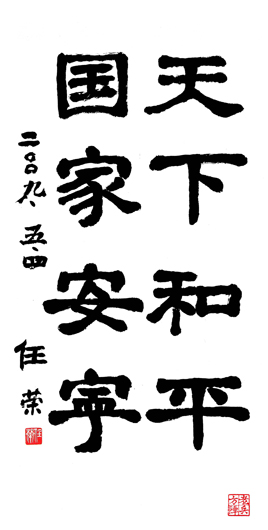 天下和平
国家安寧
二〇〇九.五.四
任荣